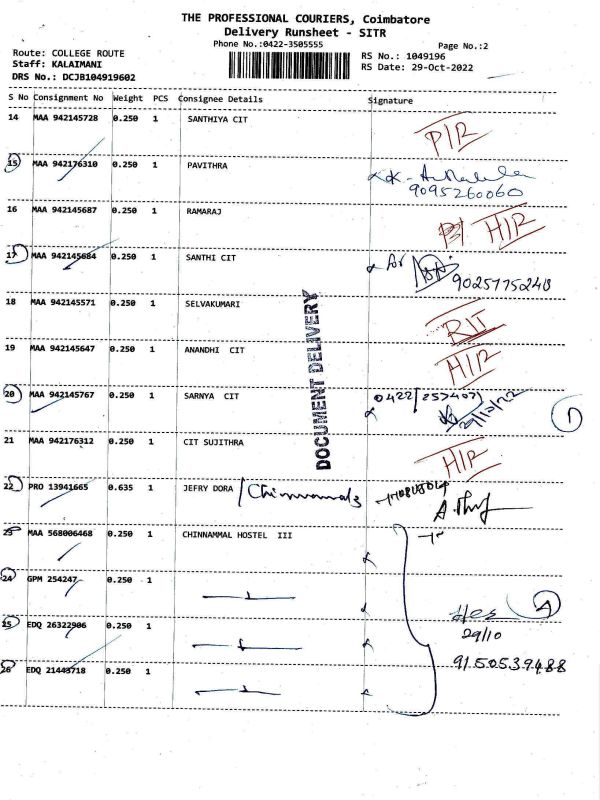 THE PROFESSIONAL COURIERS, Coimbatore
Delivery Runsheet - SITR
Phone No.:0422-3505555
Page No.:2
Route: COLLEGE ROUTE
Staff: KALAIMANI
DRS No.: DCJB104919602
RS No.: 1049196
RS Date: 29-Oct-2022
S No Consignment No Weight PCS Consignee Details Signature
14 MAA 942145728 0.250 1 SANTHIYA CIT
15 MAA 942176310 0.250 1 PAVITHRA
9095260060
16 MAA 942145687 0.250 1 RAMARAJ HIR
17 MAA 942145684 0.250 1 SANTHI CIT
18 MAA 942145571 0.250 1 SELVAKUMARI
19 MAA 942145647 0.250 1 ANANDHI CIT HIR
DOCUMENT DELIVERY
20 MAA 942145767 0.250 1 SARNYA CIT
29/10/22
1
21 MAA 942176312 0.250 1 CIT SUJITHRA HIR
22 PRO 13941665 0.635 1 JEFRY DORA /
23 MAA 568006468 0.250 1 CHINNAMMAL HOSTEL III
24 GPM 254247 0.250 1
4
25 EDQ 26322906 0.250 1
29/10
26 EDQ 21443718 0.250 1
9150539488